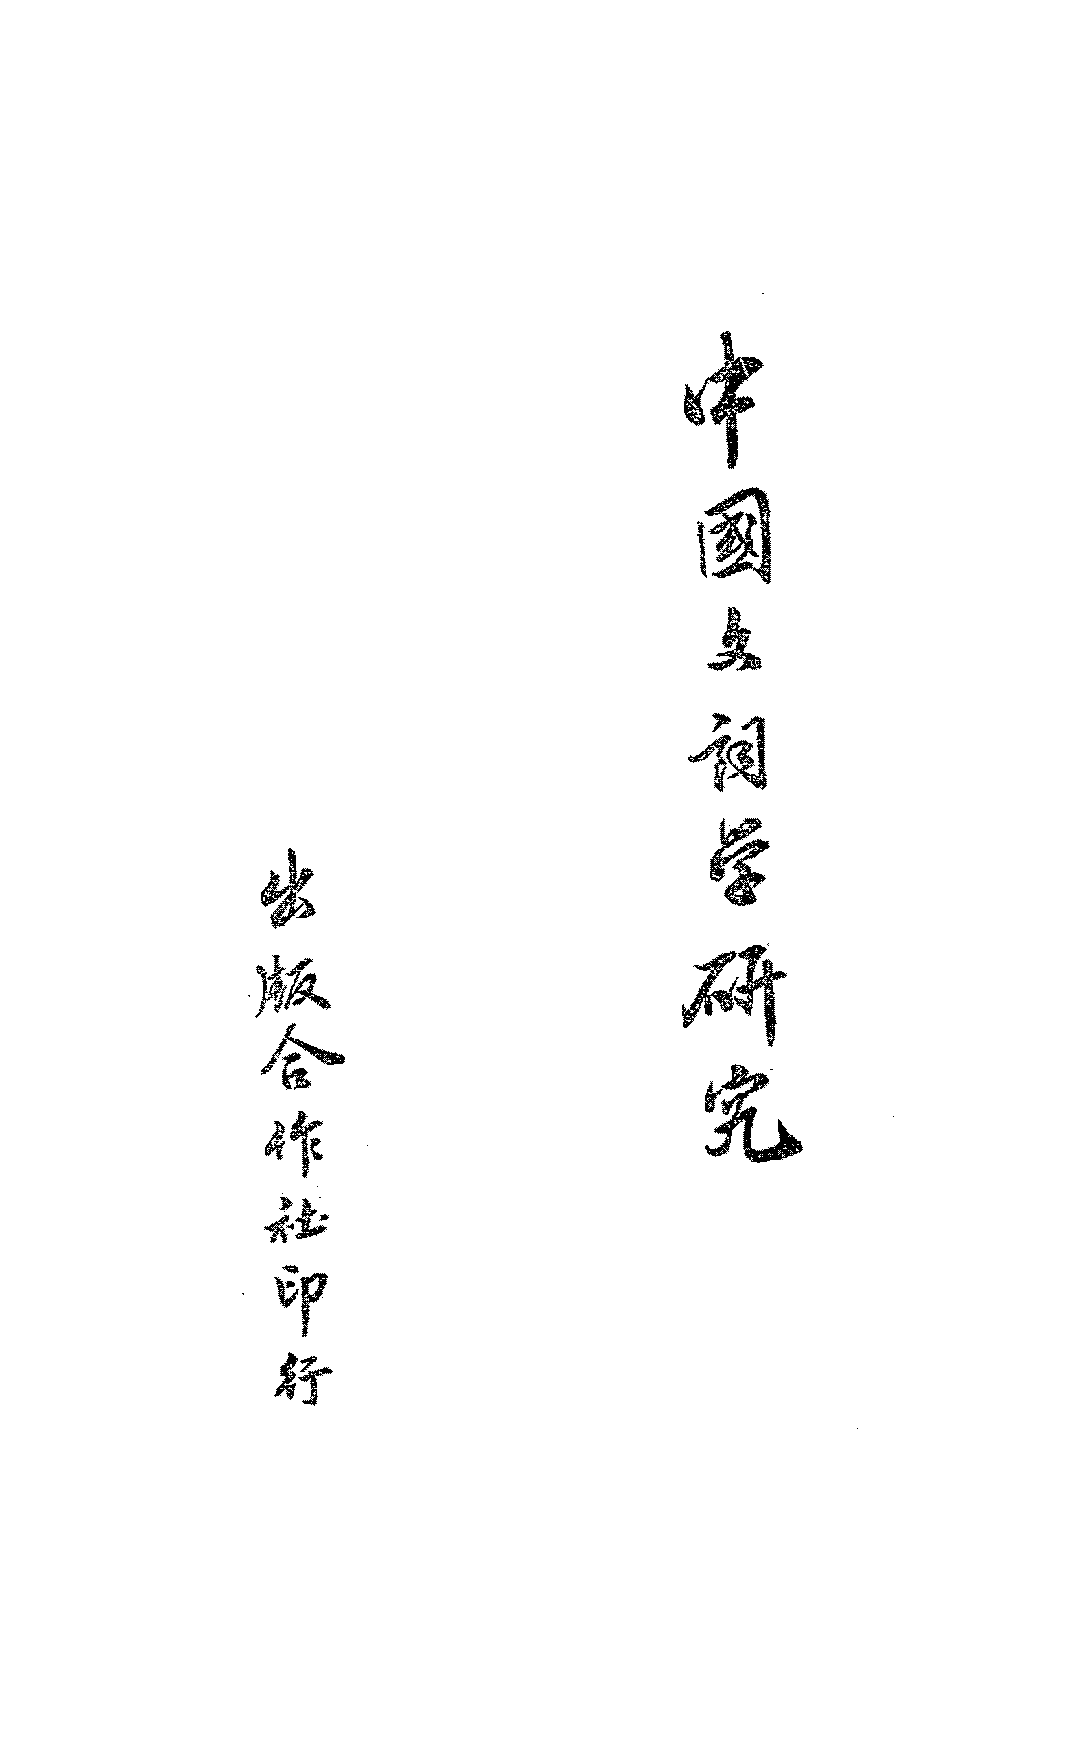 中國文詞学研究
出版合作社印行